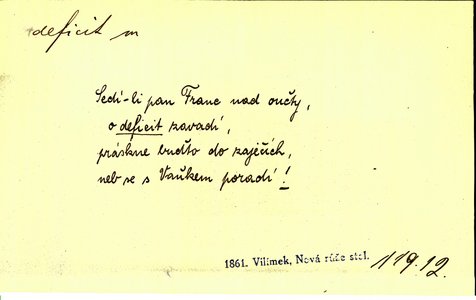 deficit m
Sedí-li pan Franc nad oučty,
o deficit zavadí,
práskne buďto do zaječích,
neb se s Vaňkem poradí!
1861. Vilímek, Nová růže stol. 119.12.